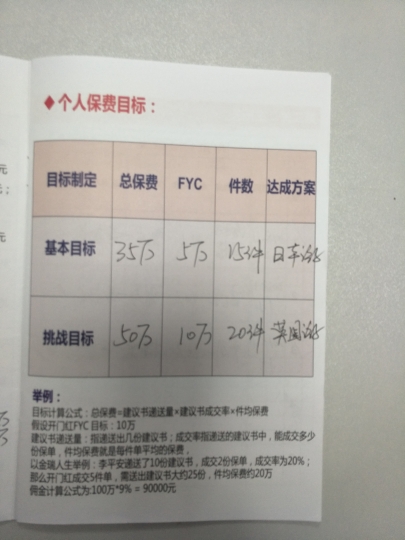 ◆个人保费目标：
目标制定 总保费 FYC 件数 达成方案
基本目标 35万 5万 15件 日本游
挑战目标 50万 10万 20件 英国游
举例：
目标计算公式：总保费=建议书递送量×建议书成交率×件均保费
假设开门红FYC 目标：10万
建议书递送量：指递送出几份建议书；成交率指递送的建议书中，能成交多少
份保单，件均保费就是每件单平均的保费，
以金瑞人生举例：李平安递送了10份建议书，成交2份保单，成交率为20%；
那么开门红成交5件单，需送出建议书大约25份，件均保费约20万
佣金计算公式为:100万*9% = 90000元
元
元；
元